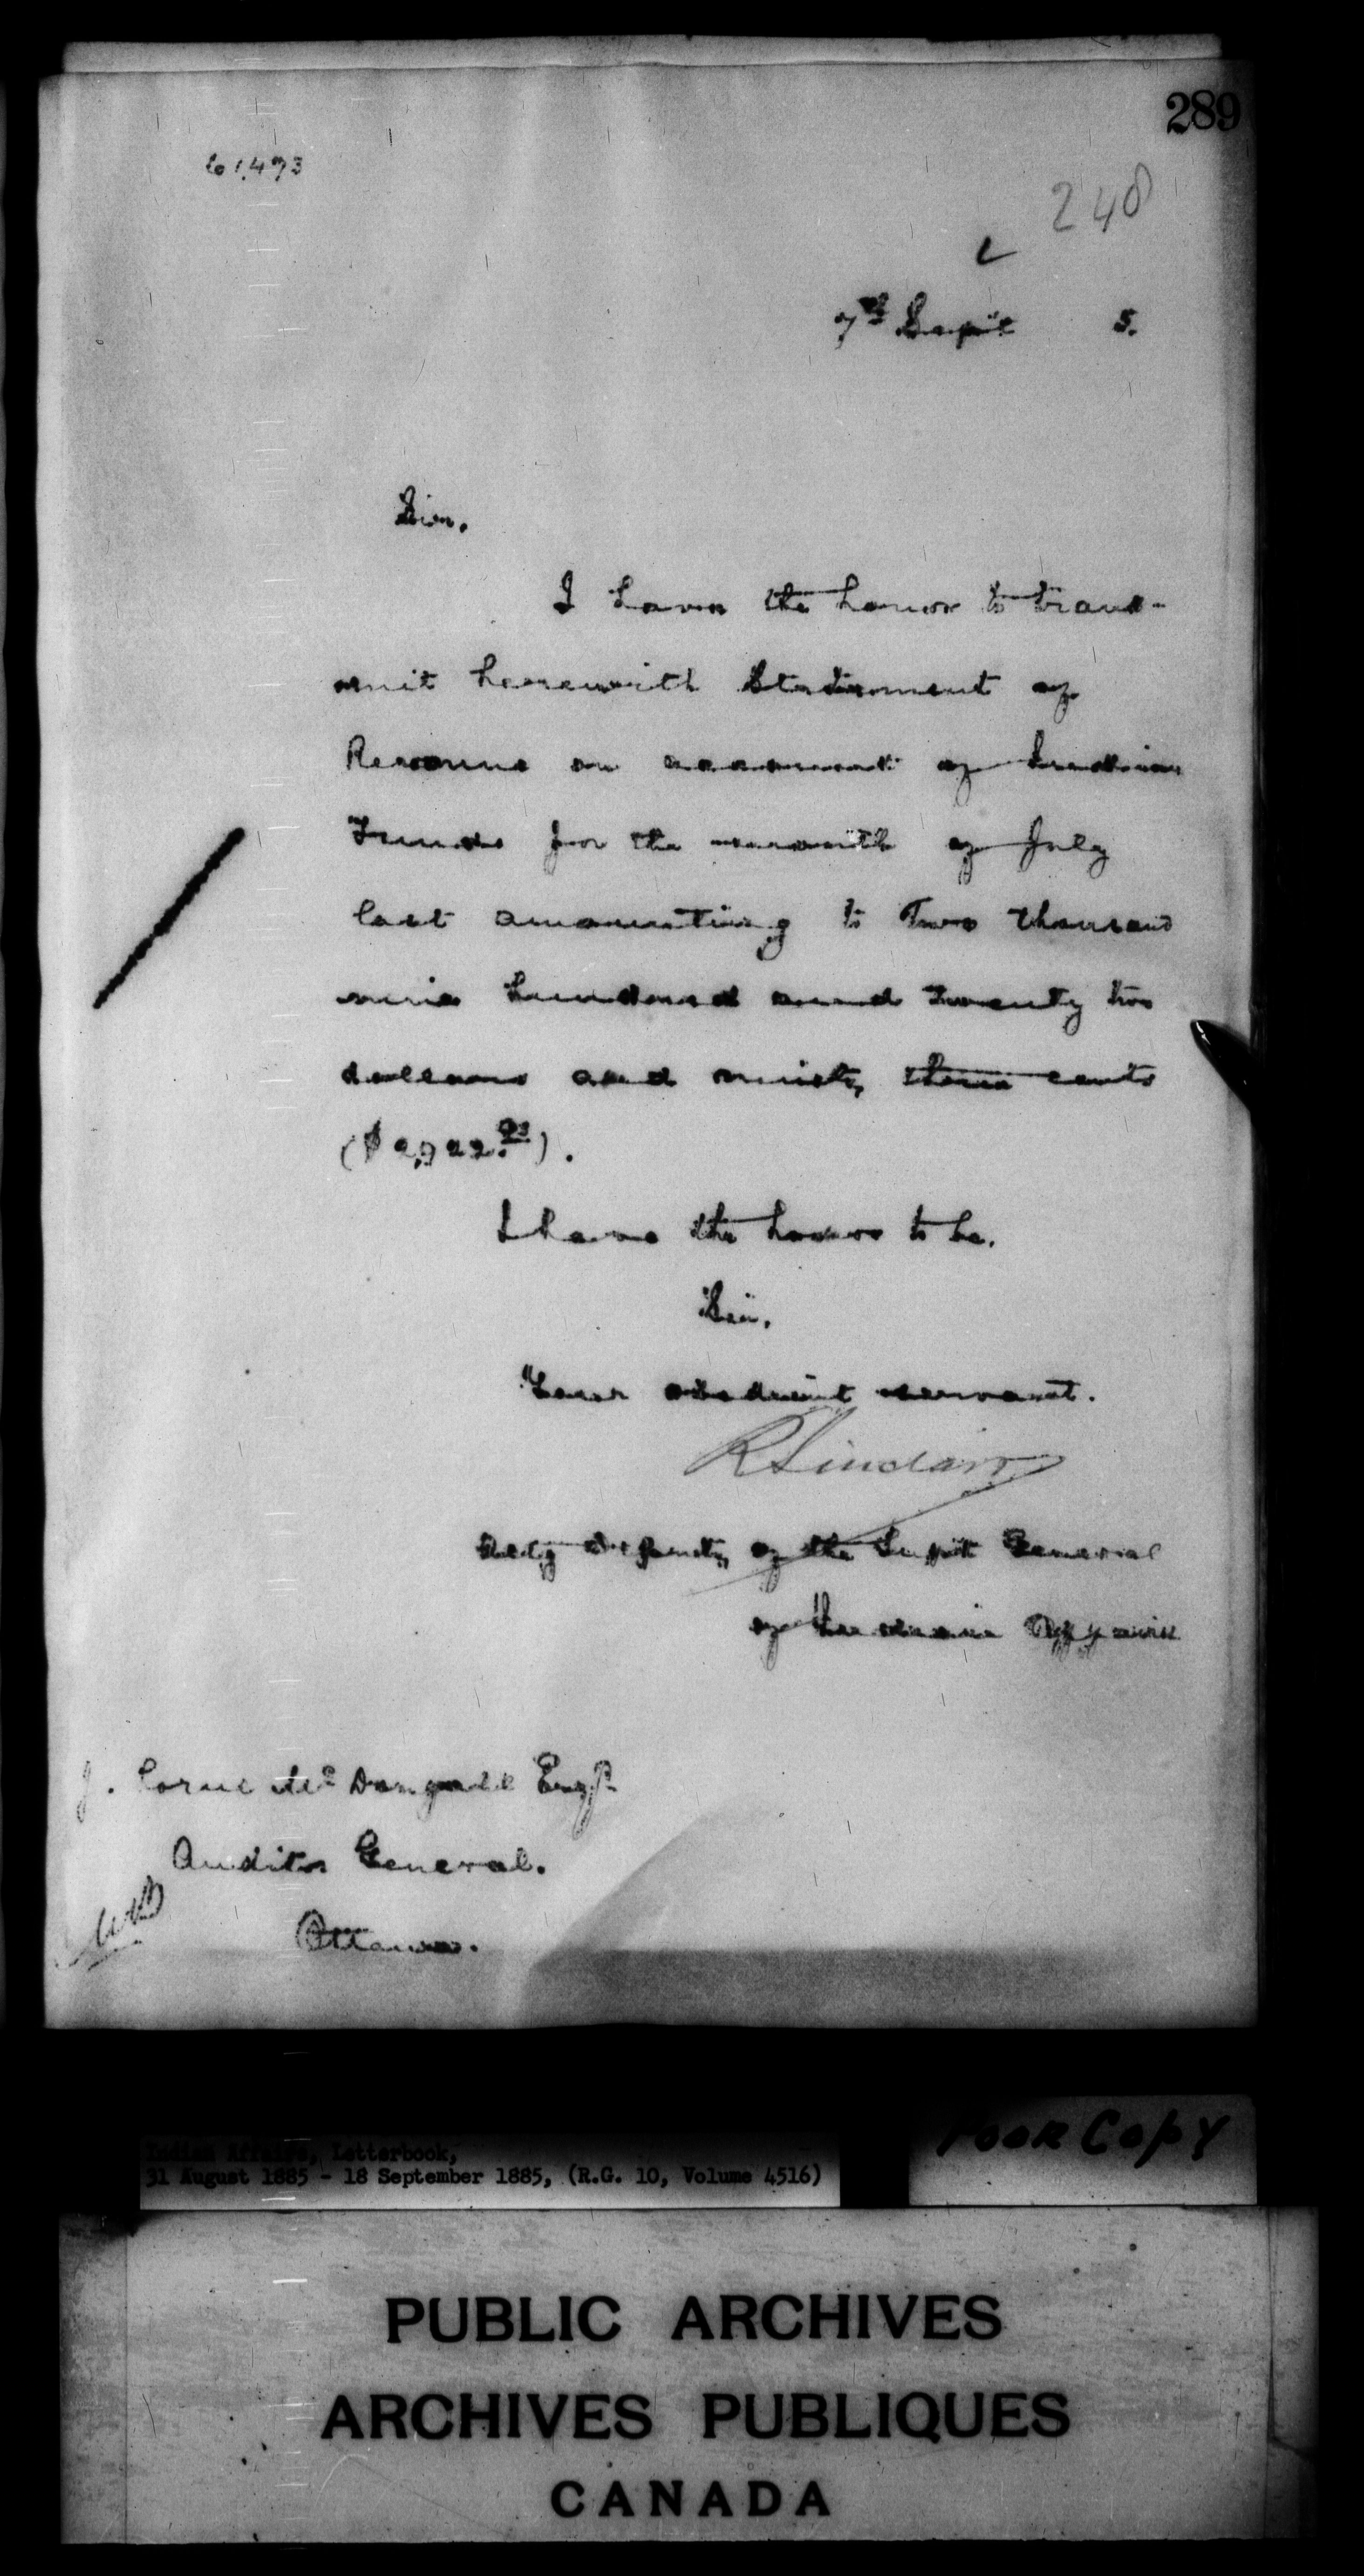 289
61,473
248
7th Sept 5.
Sir,
I have the honor to trans-
mit herewith Statement of
Revenue on account of Indian
Funds for the month of July
last amounting to Two thousand
nine hundred and twenty two
dollars and ninety three cents
($2,922.93).
I have the honor to be,
Sir,
Your obedient servant.
R Sinclair
Actg Deputy of the Supt General
of Indian Affairs
J. Lorne McDougall Esqr.
Auditor General.
Ottawa.
Indian Affairs, Letterbook,
31 August 1885 - 18 September 1885, (R.G. 10, Volume 4516)
Poor Copy
PUBLIC ARCHIVES
ARCHIVES PUBLIQUES
CANADA